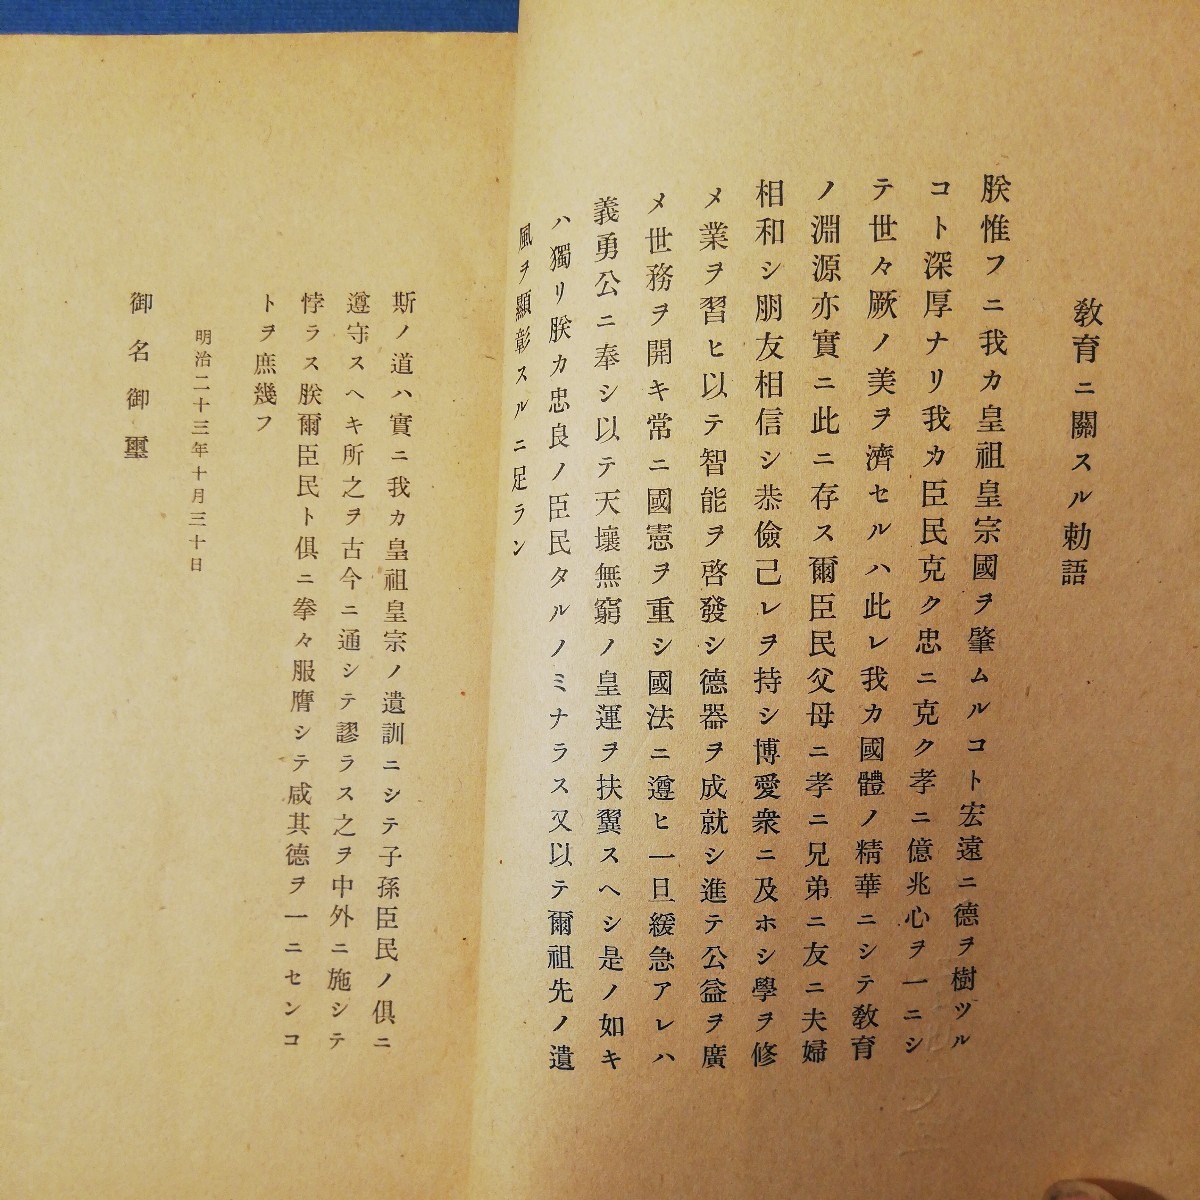 敎育ニ關スル勅語
朕惟フニ我カ皇祖皇宗國ヲ肇ムルコト宏遠ニ德ヲ樹ツル
コト深厚ナリ我カ臣民克ク忠ニ克ク孝ニ億兆心ヲ一ニシ
テ世々厥ノ美ヲ濟セルハ此レ我カ國體ノ精華ニシテ敎育
ノ淵源亦實ニ此ニ存ス爾臣民父母ニ孝ニ兄弟ニ友ニ夫婦
相和シ朋友相信シ恭儉己レヲ持シ博愛衆ニ及ホシ學ヲ修
メ業ヲ習ヒ以テ智能ヲ啓發シ德器ヲ成就シ進テ公益ヲ廣
メ世務ヲ開キ常ニ國憲ヲ重シ國法ニ遵ヒ一旦緩急アレハ
義勇公ニ奉シ以テ天壤無窮ノ皇運ヲ扶翼スヘシ是ノ如キ
ハ獨リ朕カ忠良ノ臣民タルノミナラス又以テ爾祖先ノ遺
風ヲ顯彰スルニ足ラン
斯ノ道ハ實ニ我カ皇祖皇宗ノ遺訓ニシテ子孫臣民ノ俱ニ
遵守スヘキ所之ヲ古今ニ通シテ謬ラス之ヲ中外ニ施シテ
悖ラス朕爾臣民ト俱ニ拳々服膺シテ咸其德ヲ一ニセンコ
トヲ庶幾フ
明治二十三年十月三十日
御名御璽